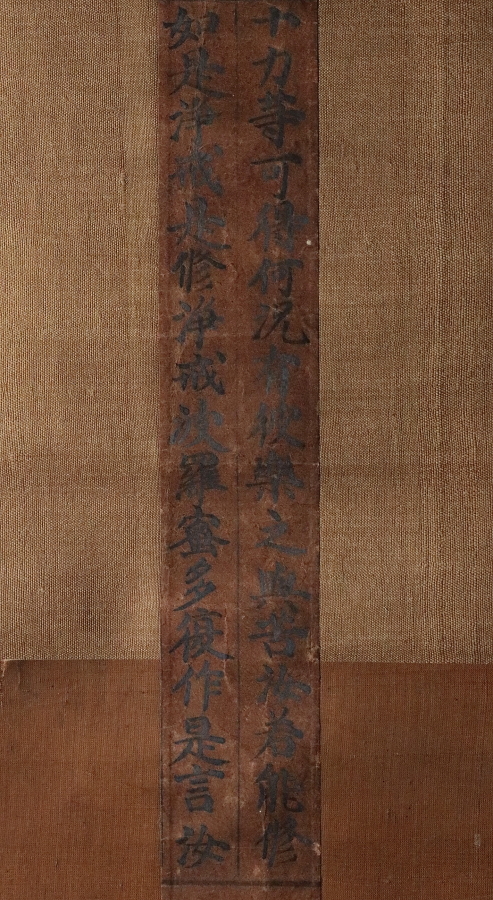 十力等可得何況有彼樂之與苦汝若能修
如是淨戒是修淨戒波羅蜜多復作是言汝